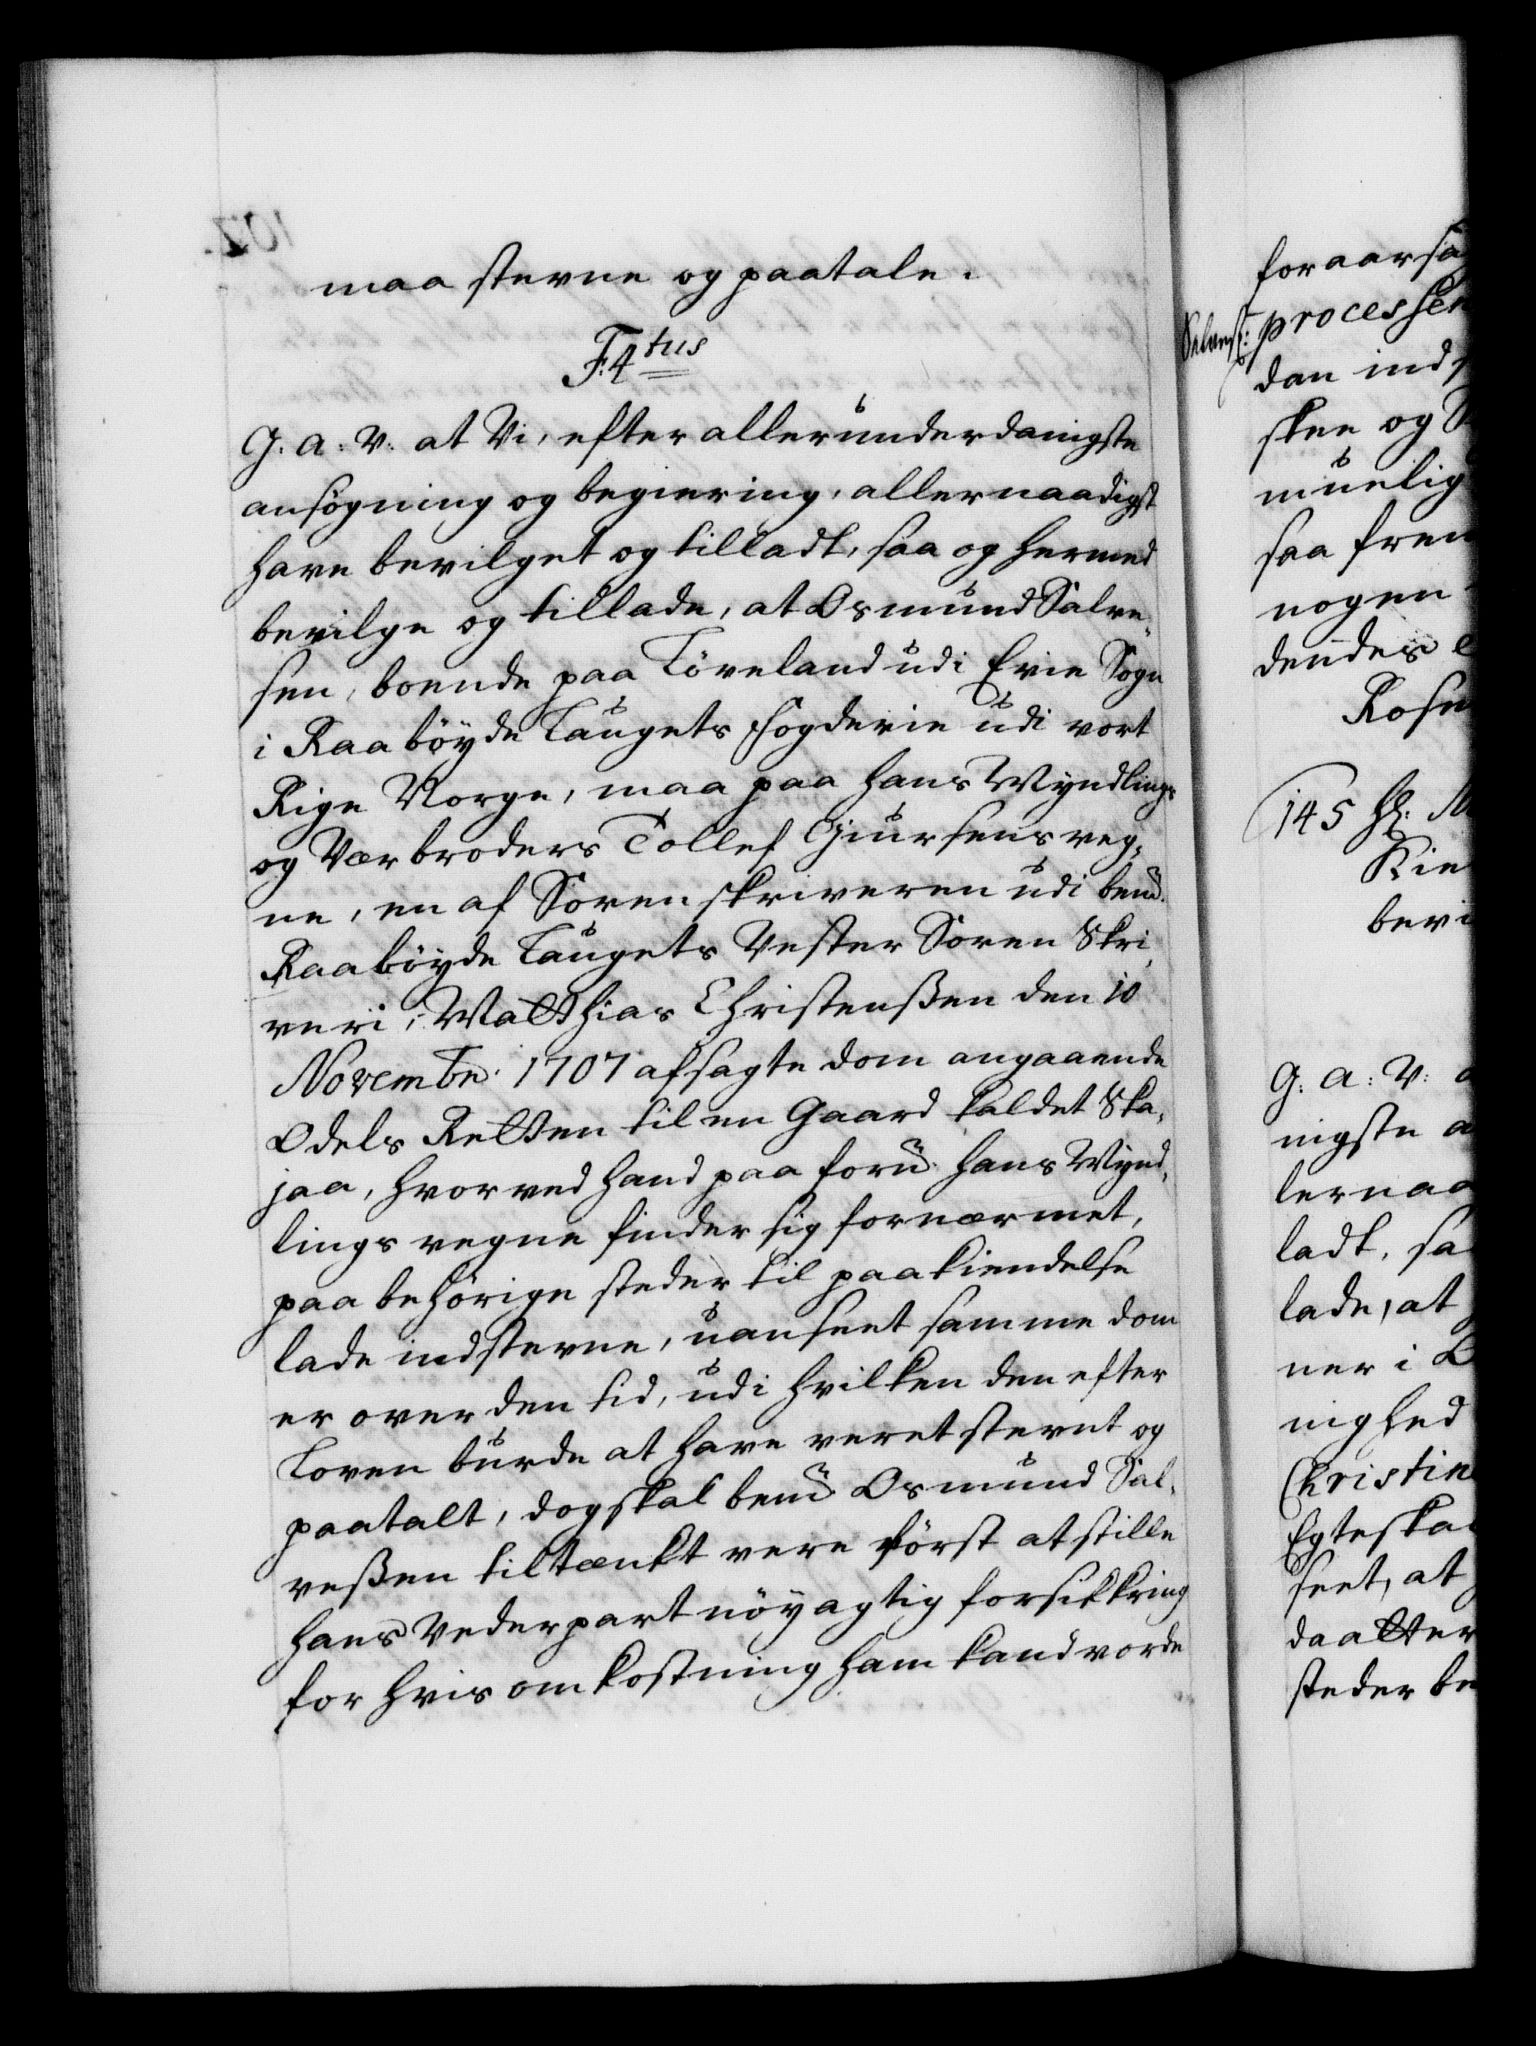 maa stevne og paatale.
F. 4tus
G. A: V: at Vi, efter allerunderdanigste
ansøgning og begiering, allernaadigst
have bevilget og tilladt, saa og hermed
bevilge og tillade, at Osmund Salve-
sen, boende paa Töveland udi Evie Sogn
i Raabøyde Laugets Fogderie udi vort
Rige Norge, maa paa hans Myndlings
og Værbroders Tollef Giursens veg-
ne, en af Sorenskriveren udi bem.
Raabøyde Laugets Vester Soren Skri-
veri, Matthias Christenßen den 10
Novembr. 1707 afsagte dom angaaende
Odels Retten til en Gaard kaldet Ska-
jaa, hvorved hand paa forn. hans Mynd-
lings vegne finder sig fornærmet,
paa behörige steder til paakiendelse
lade indstevne, uanseet samme dom
er over den tid, udi hvilken den efter
Loven burde at have veret stevnt og
paatalt, dog skal bem Osmund Sal-
veßen tiltænkt vere först at stille
hans Vederpart nöyagtig forsikkring
for hvis omkostning ham kand vorde
foraarsa
processen
dan ind
skee og
muelig
saa frem
nogen
dendes
145
bevi
G: A: V:
nigste a
lernaa
ladt, sa
lade, at
ner i
nighed
Christin
Egteska
seet, at
daatter
steder be